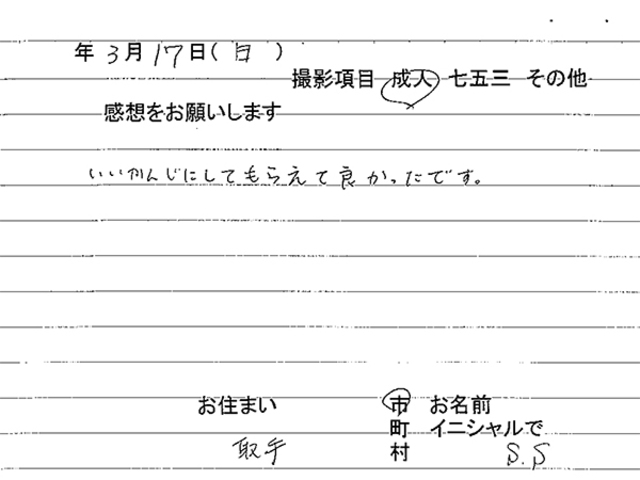 年 3月 17日( 日 )
撮影項目 成人 七五三 その他
感想をお願いします
いいかんじにしてもらえて良かったです。
お住まい 市 お名前
町 イニシャルで
取手 村 S.S